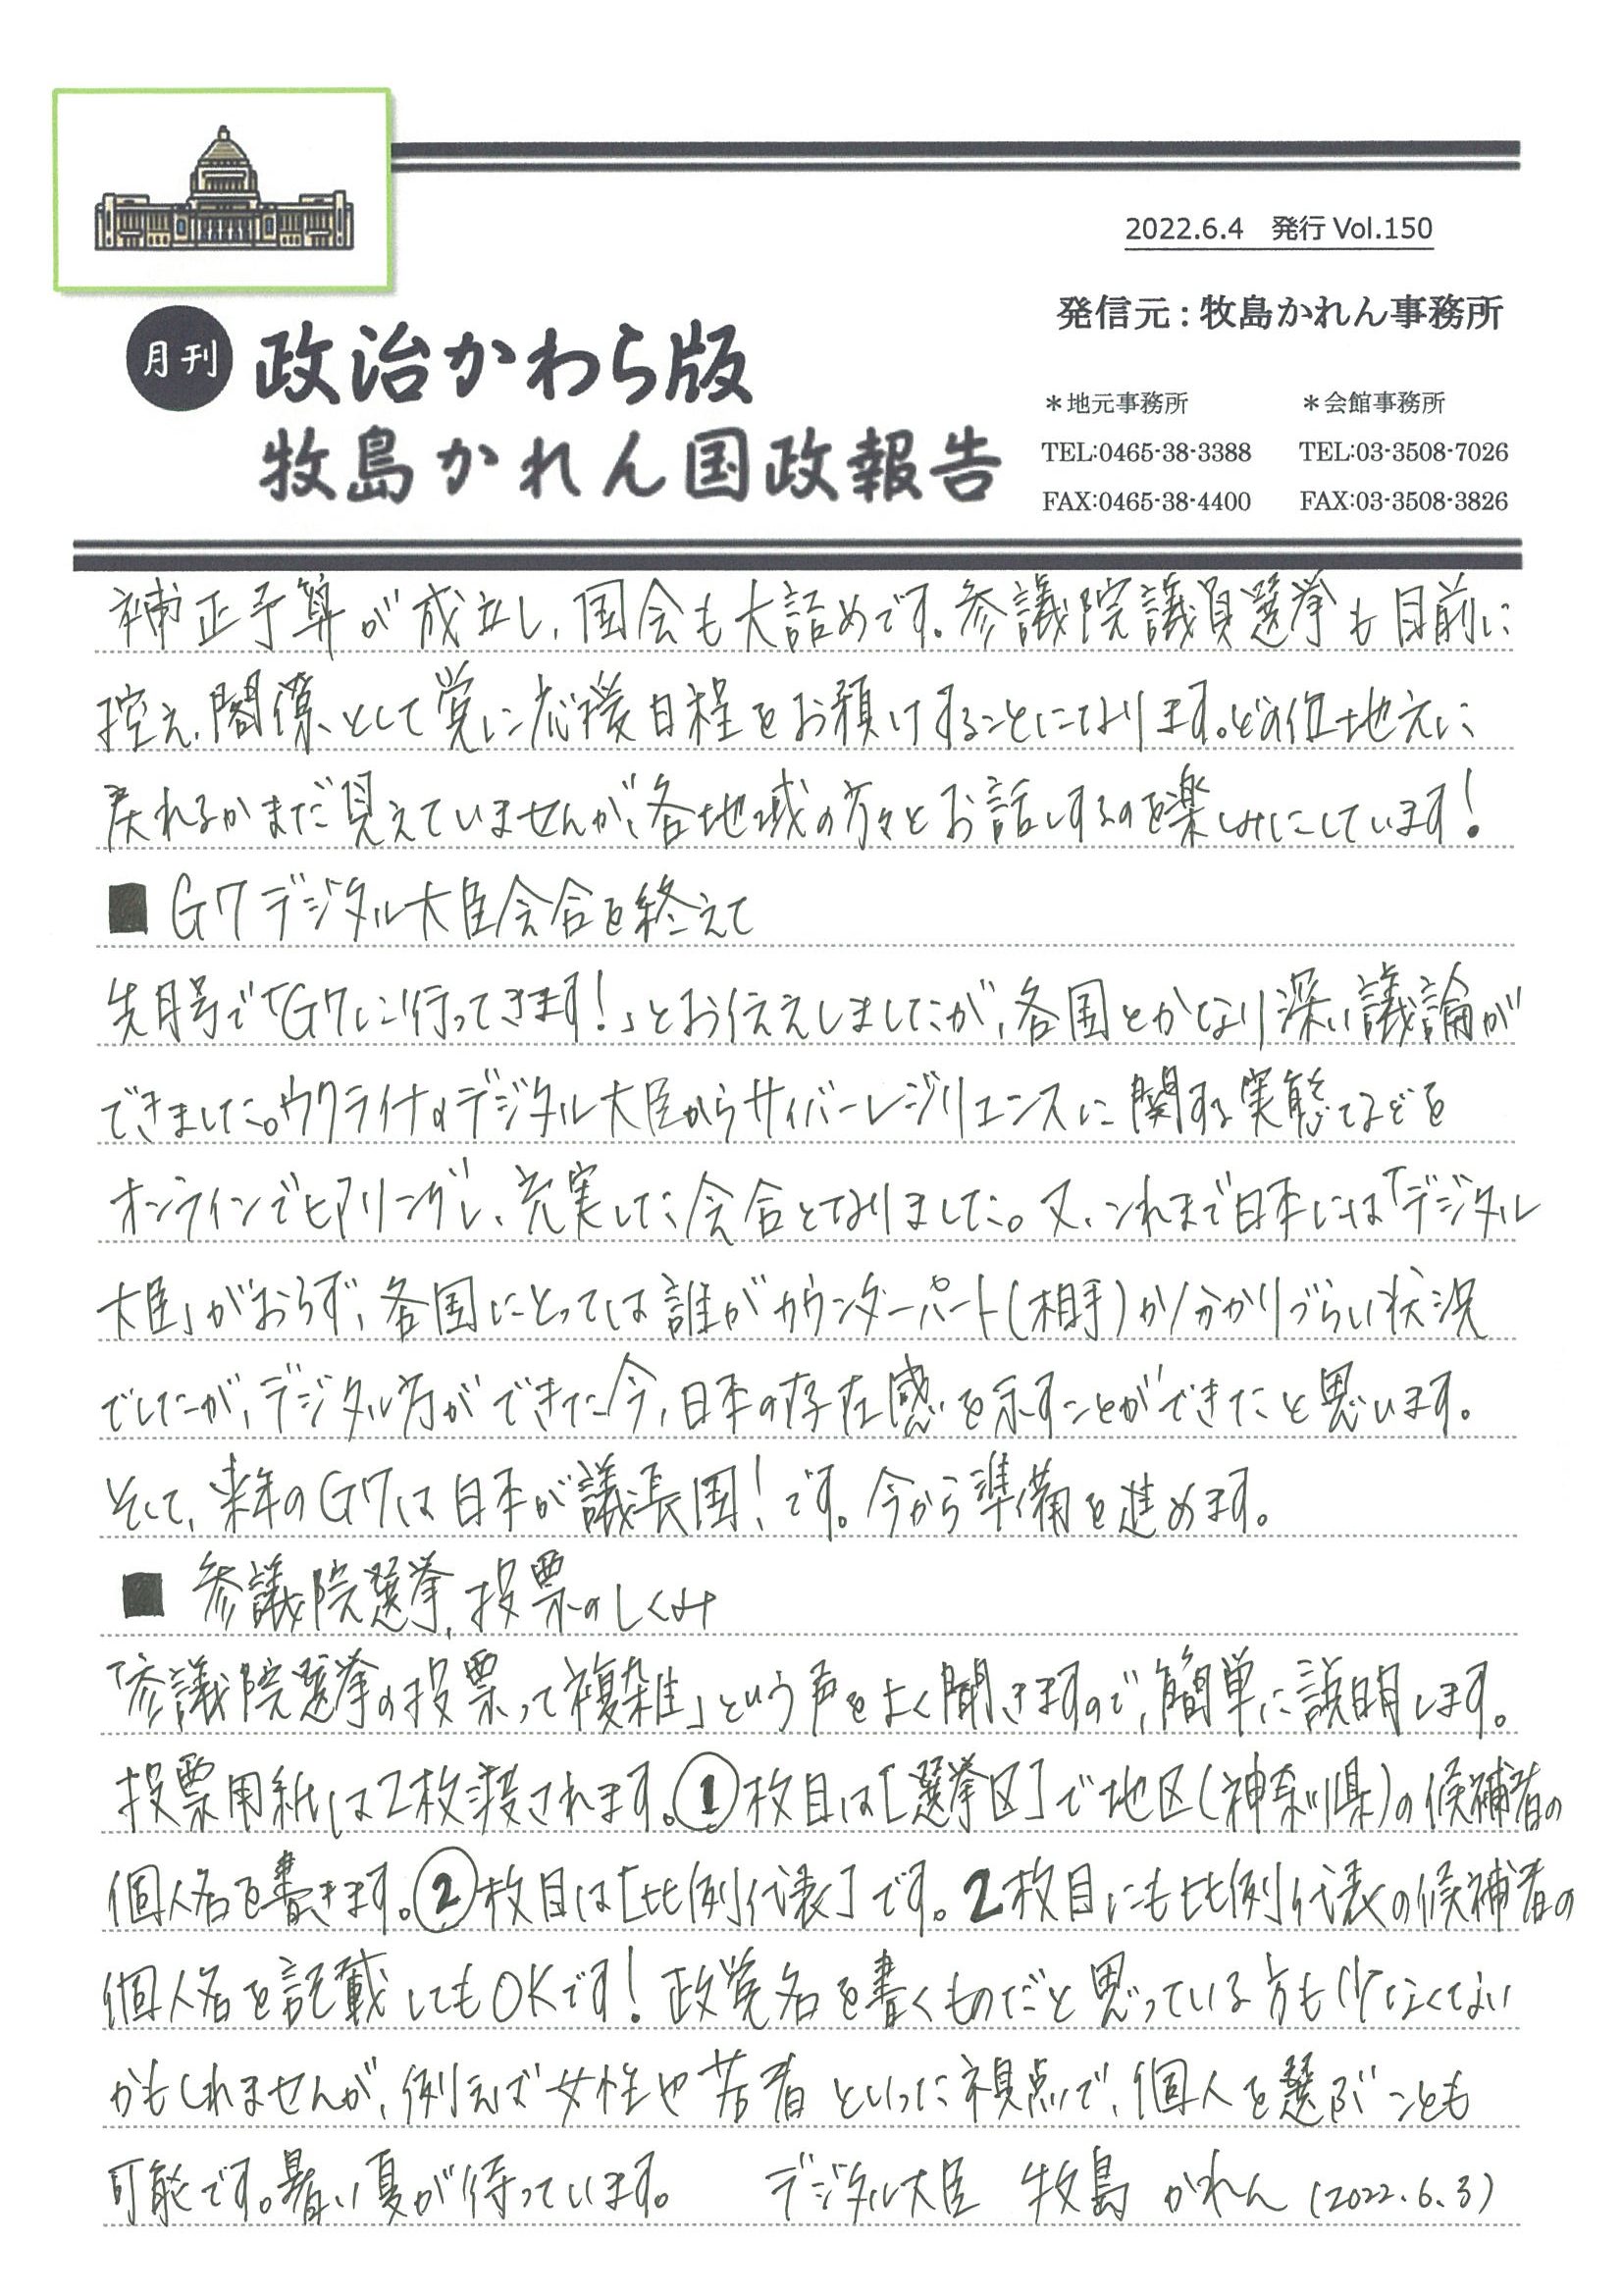 2022.6.4 発行 Vol.150
発信元：牧島かれん事務所
月刊 政治かわら版
牧島かれん国政報告
＊地元事務所 ＊会館事務所
TEL:0465-38-3388 TEL:03-3508-7026
FAX:0465-38-4400 FAX:03-3508-3826
補正予算が成立し、国会も大詰めです。参議院議員選挙も目前に
控え、閣僚として党に応援日程をお預けすることになります。どの位地元に
戻れるかまだ見えていませんが、各地域の方々とお話しするのを楽しみにしています!
■ G7デジタル大臣会合を終えて
先月号で「G7に行ってきます!」とお伝えしましたが、各国とかなり深い議論が
できました。ウクライナのデジタル大臣からサイバーレジリエンスに関する実態などを
オンラインでヒアリングし、充実した会合となりました。又、これまで日本には「デジタル
大臣」がおらず、各国にとっては誰がカウンターパート(相手)か分かりづらい状況
でしたが、デジタル庁ができた今、日本の存在感を示すことができたと思います。
そして、来年のG7は日本が議長国!です。今から準備を進めます。
■ 参議院選挙、投票のしくみ
「参議院選挙の投票って複雑」という声をよく聞きますので、簡単に説明します。
投票用紙は2枚渡されます。①枚目は[選挙区]で地区(神奈川県)の候補者の
個人名を書きます。②枚目は[比例代表]です。2枚目にも比例代表の候補者の
個人名を記載してもOKです!政党名を書くものだと思っている方も少なくない
かもしれませんが、例えば女性や若者といった視点で、個人を選ぶことも
可能です。暑い夏が待っています。 デジタル大臣 牧島かれん (2022.6.3)